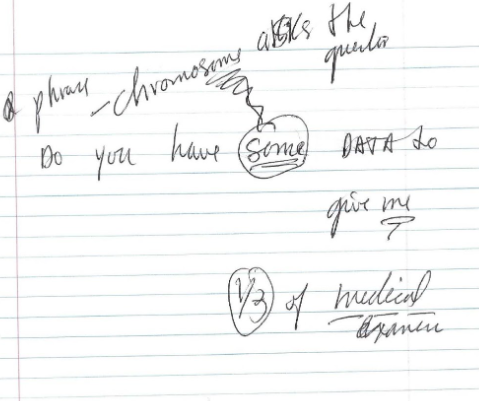 phrase - chromosome asks the
question
Do you have some DATA to
give me
1/3 of medical
examin